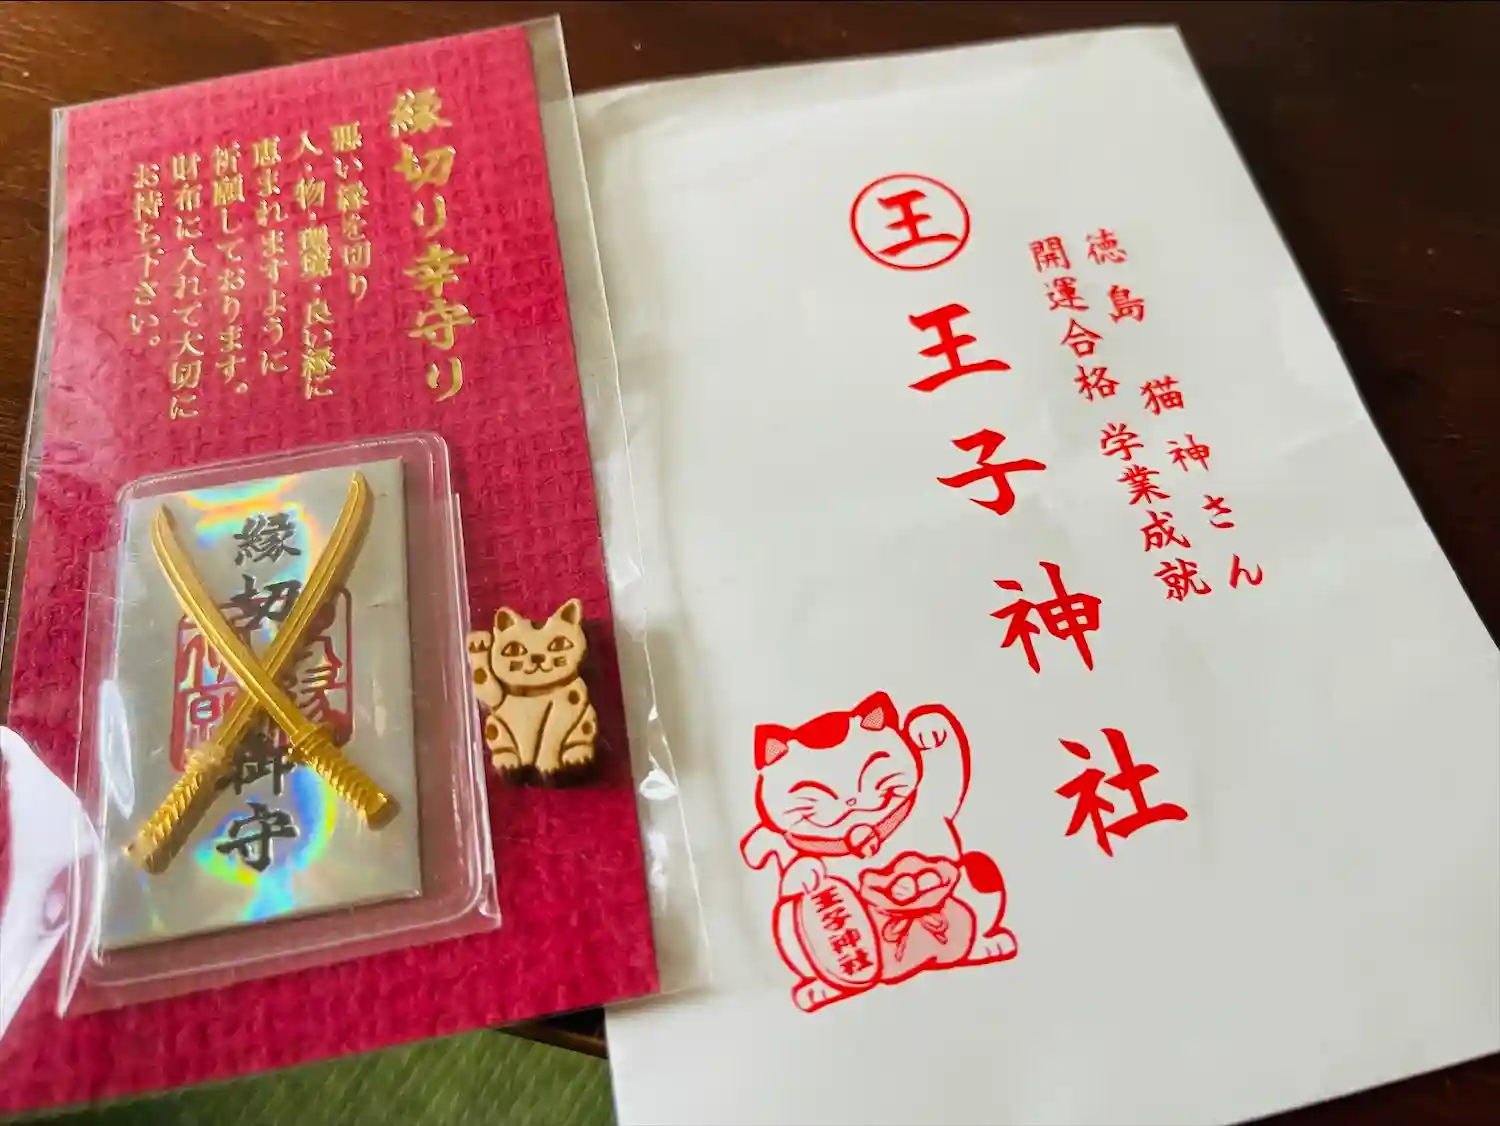 縁切り幸守り
悪い縁を切り
人・物・環境・良い縁に
恵まれますように
祈願しております。
財布に入れて大切に
お持ち下さい。
縁切御守
徳島 猫神さん
開運合格 学業成就
王
王子神社
王子神社